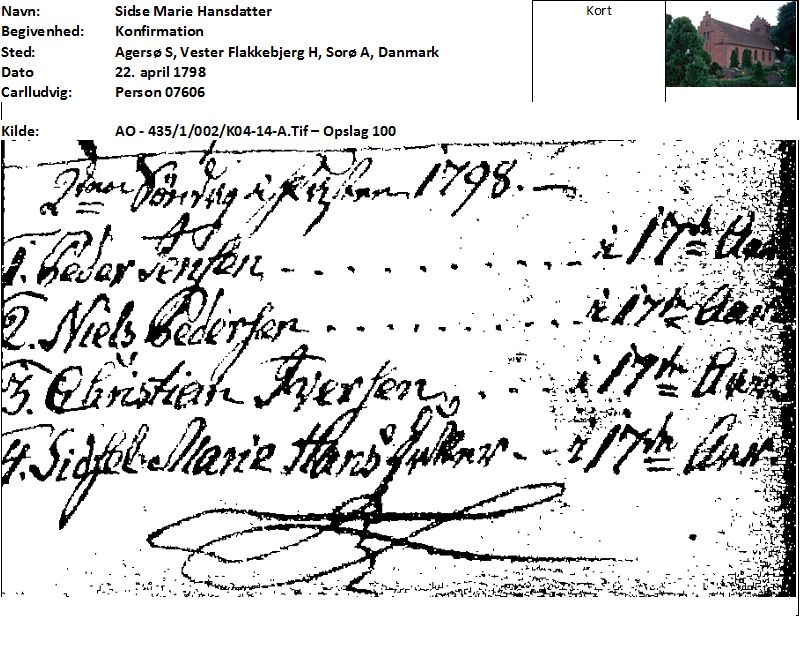 Navn: Sidse Marie Hansdatter
Kort
Begivenhed: Konfirmation
Sted: Agersø S, Vester Flakkebjerg H, Sorø A, Danmark
Dato 22. april 1798
Carlludvig: Person 07606
Kilde: AO - 435/1/002/K04-14-A.Tif – Opslag 100
2den Söndag i 1798. —
1. Peder Jensen - . . . . . . . . . . i 17de Aar
2. Niels Pedersen . . . . . . . . . i 17de Aar
3. Christian Iversen . . . i 17de Aar
4. Sidsel Marie Hans - i 17de Aar